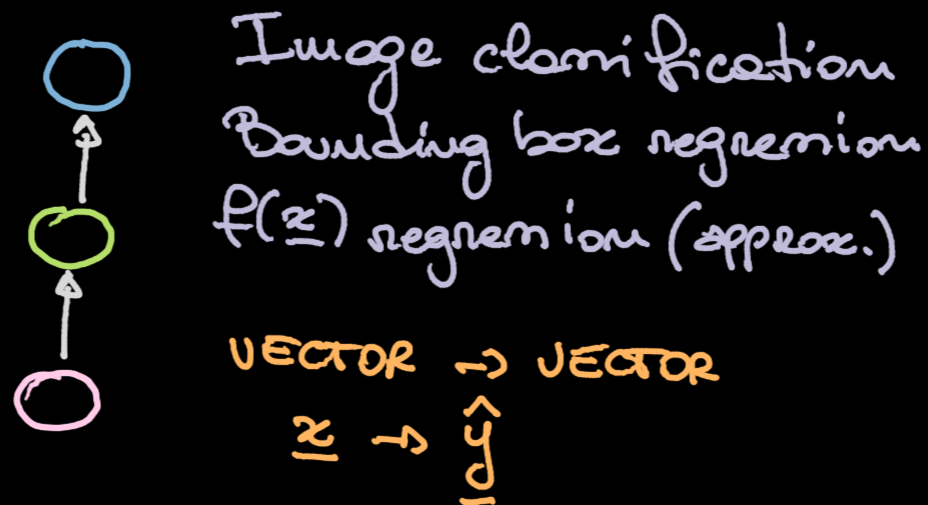 Image classification
Bounding box regression
f(x) regression (approx.)
VECTOR → VECTOR
x → ŷ